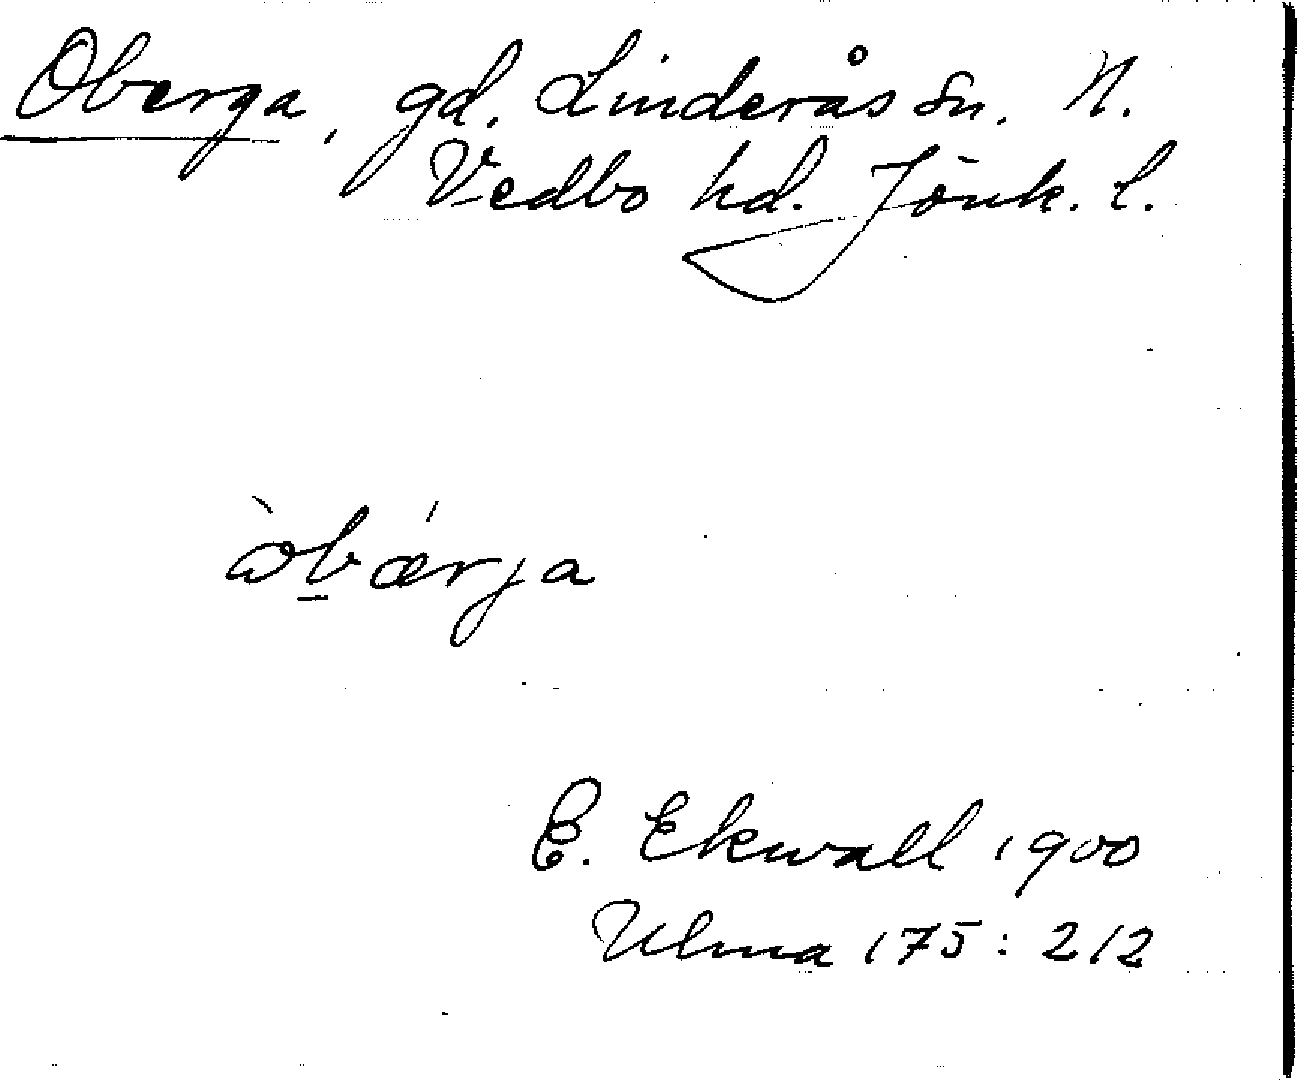 Oberga, gd. Linderås sn. N.
Vedbo hd. Jönk. l.
òbǽrja
E. Ekwall 1900
Ulma 175:212